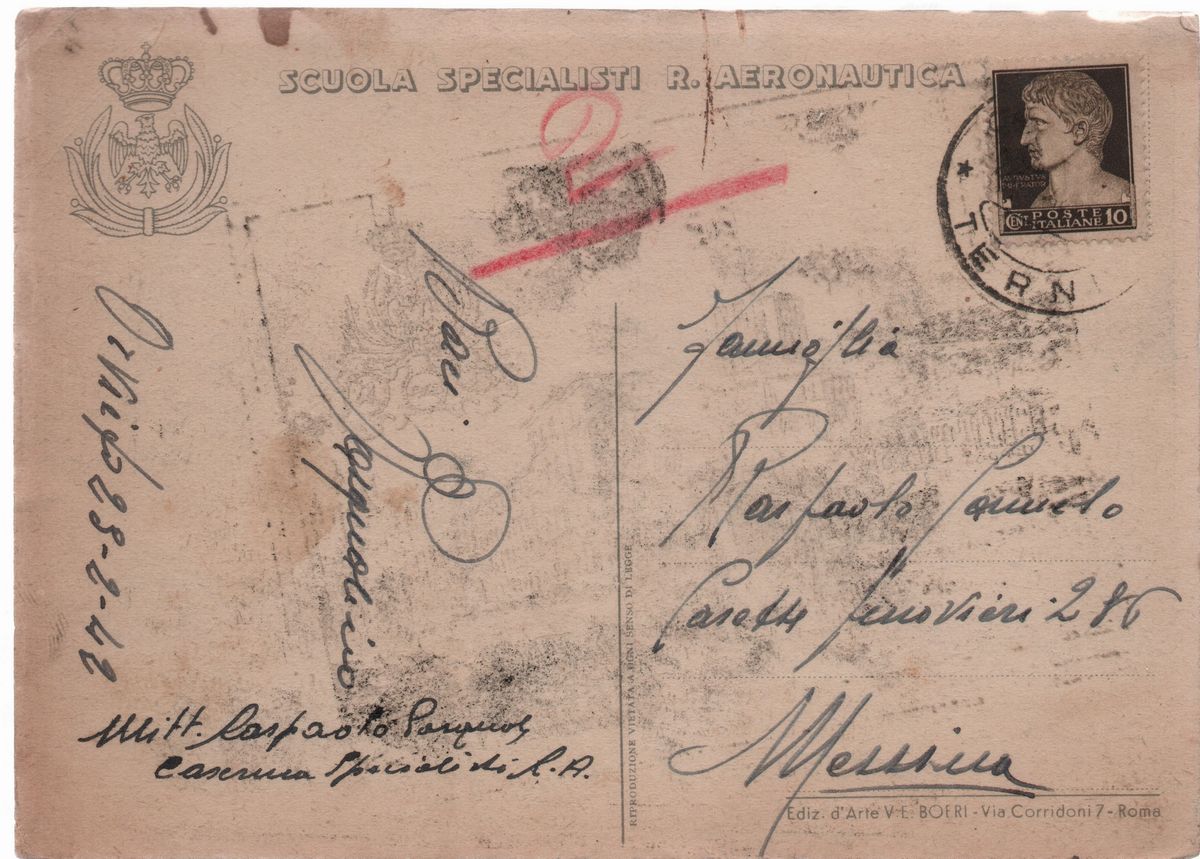 SCUOLA SPECIALISTI R. AERONAUTICA
2
AVGVSTVS
IMPERATOR
CENT. POSTE
ITALIANE 10
TERNI
Orvieto 28-2-42
Baci
Pasqualino
Mitt. Raspaolo
Caserma Specialisti R.A.
Famiglia
Raspaolo Carmelo
Casette Ferrovieri 286
Messina
RIPRODUZIONE VIETATA A OGNI SENSO DI LEGGE
Ediz. d'Arte V. E. BOERI - Via Corridoni 7 - Roma